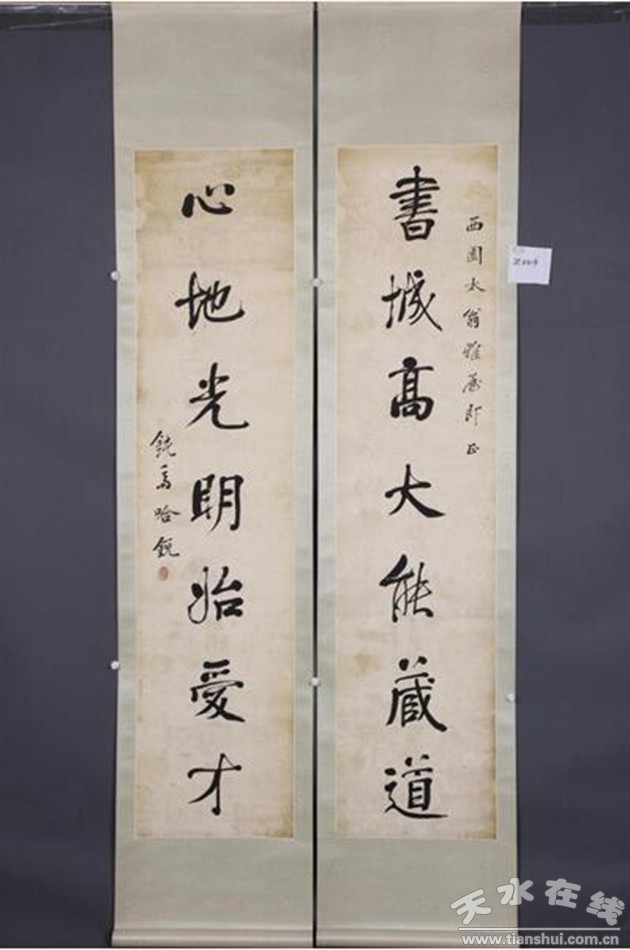 書城高大能藏道
西園太翁雅屬即正
心地光明始愛才
哈銳
天水在线
www.tianshui.com.cn